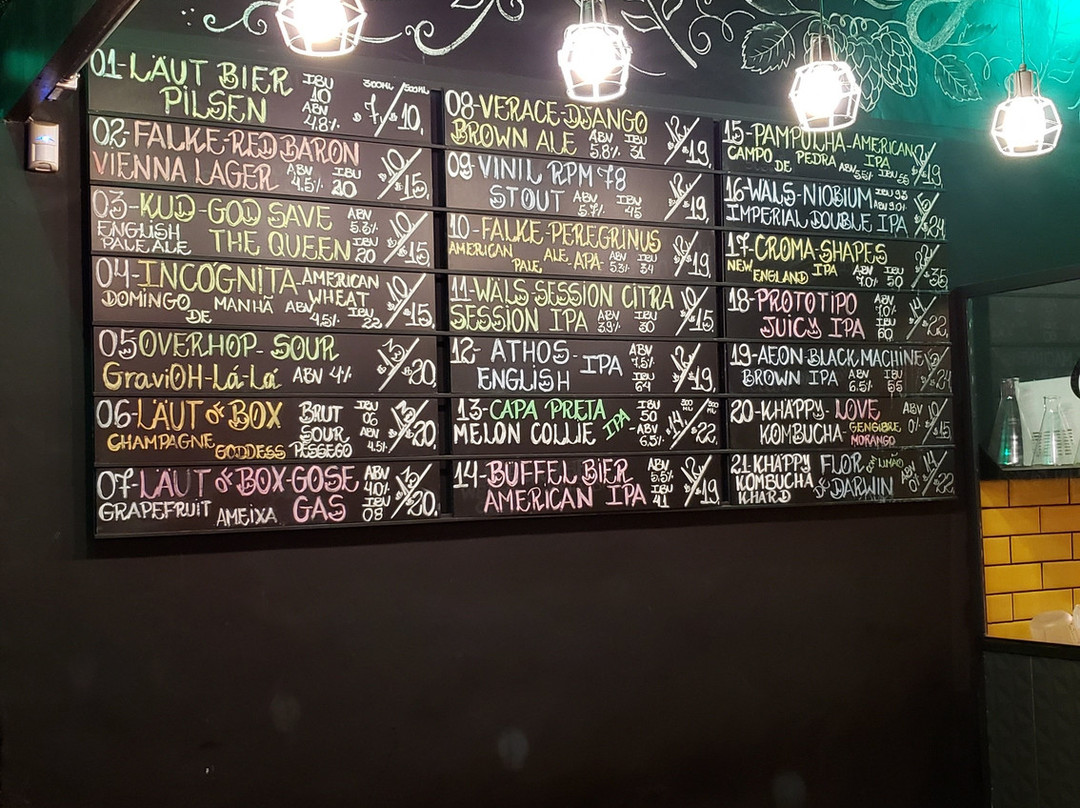 01-LÄUT BIER IBU 10 300ML/500ML
PILSEN ABV 4.8% $7/10,
02-FALKE-RED BARON
VIENNA LAGER ABV 4.5% IBU 20 10/$15
03-KUD-GOD SAVE ABV 5.3%
ENGLISH PALE ALE THE QUEEN IBU 20 10/$15
04-INCOGNITA-AMERICAN WHEAT
DOMINGO DE MANHÃ ABV 4.5% IBU 22 10/$15
05 OVERHOP- SOUR
GraviOH-Lá-Lá ABV 4% $20,
06-LÄUT OF BOX BRUT SOUR IBU 06
CHAMPAGNE GODDESS PÊSSEGO ABV 4.5% $20
07-LÄUT OF BOX-GOSE ABV 4.0%
GRAPEFRUIT AMEIXA GAS IBU 08 $20.
08-VERACE-DJANGO
BROWN ALE ABV 5.8% IBU 31 12/$19,
09-VINIL RPM 78
STOUT ABV 5.7% IBU 45 12/$19,
10-FALKE-PEREGRINUS
AMERICAN PALE ALE-APA- ABV 5.3% IBU 34 12/$19,
11-WÄLS SESSION CITRA
SESSION IPA ABV 3.9% IBU 30 10/$15
12- ATHOS-IPA ABV 7.5%
ENGLISH IBU 64 12/$19,
13-CAPA PRETA IPA IBU 50 300ML/500ML
MELON COLLIE ABV 6.5% $14/22,
14-BÜFFEL BIER ABV 5.5%
AMERICAN IPA IBU 41 12/$19,
15-PAMPULHA-AMERICAN IPA
CAMPO DE PEDRA ABV 5.5% IBU 55 $19,
16-WÄLS-NIOBIUM IBU 93 ABV 9.0%
IMPERIAL DOUBLE IPA $24
17-CROMA-SHAPES
NEW ENGLAND IPA ABV 7.0% IBU 50 $35
18-PROTOTIPO ABV 7.0%
JUICY IPA IBU 60 14/$22,
19-AEON BLACK MACHINE
BROWN IPA ABV 6.5% IBU 55
20-KHÄPPY- LOVE ABV 0%
KOMBUCHA- GENGIBRE MORANGO 10/$15
21-KHÄPPY FLOR LIMÃO
KOMBUCHA KHARD DE DARWIN ABV 14/22